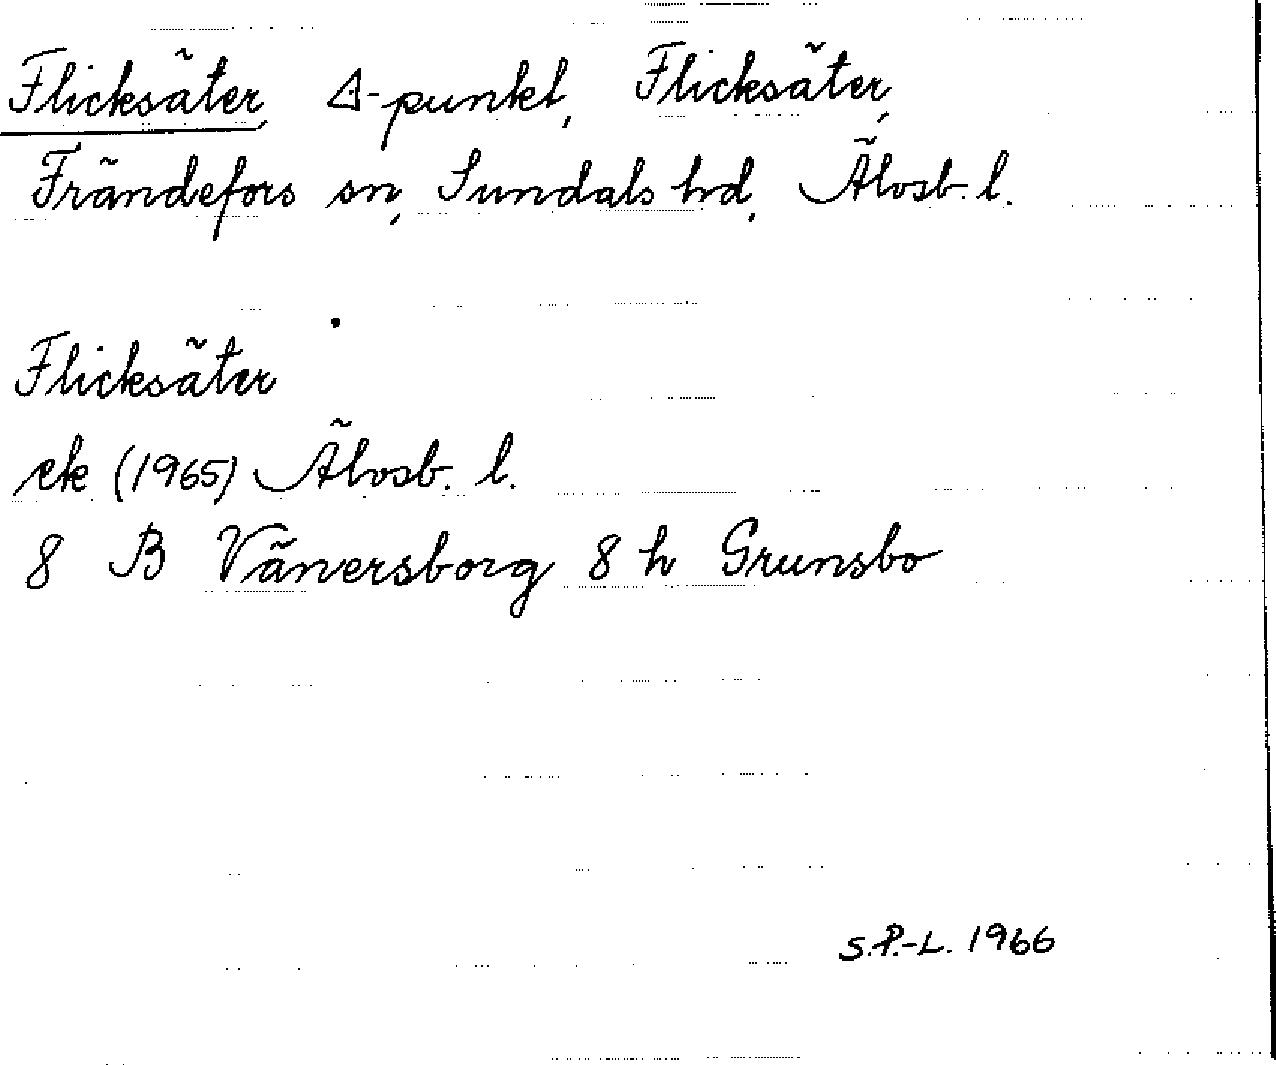 Flicksäter, Δ-punkt, Flicksäter,
Frändefors sn, Sundals hd, Älvsb. l.
Flicksäter
ek (1965) Älvsb. l.
8 B Vänersborg 8 h Grunsbo
S.P.-L. 1966